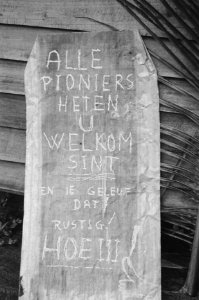 ALLE
PIONIERS
HETEN
U
WELKOM
SINT
EN JE GELEUF
DAT!
RUSTIG!
HOEIII!